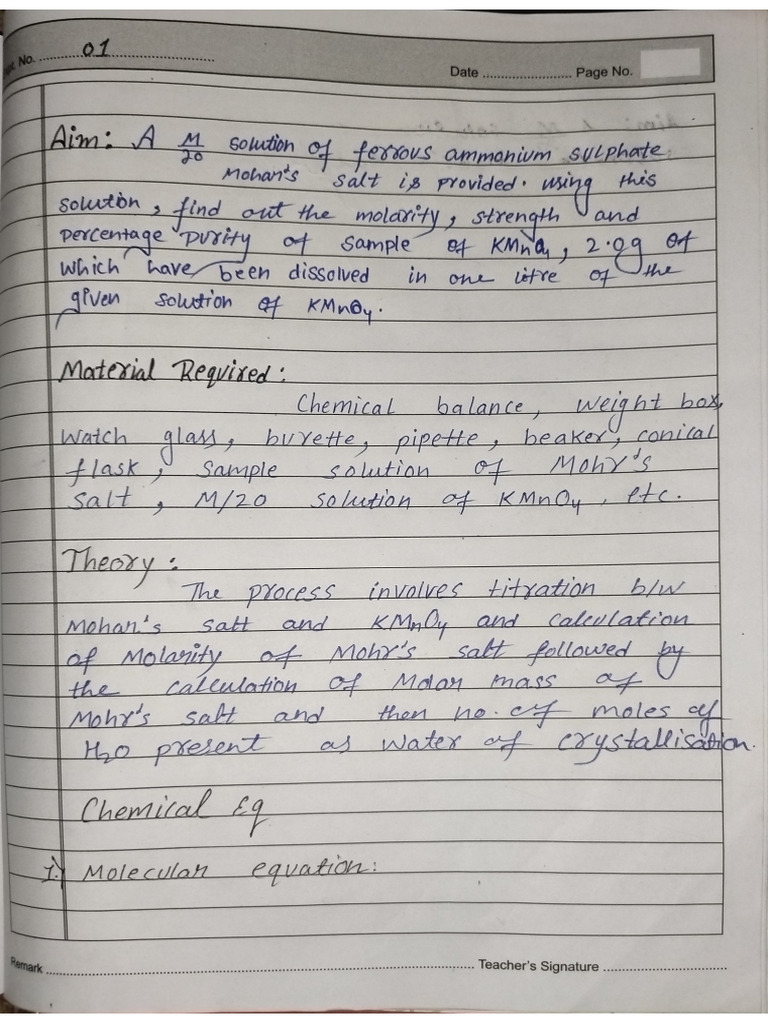 ge No. 01
Date Page No.
Aim: A M/20 solution of ferrous ammonium sulphate
Mohan's salt is provided. using this
solution, find out the molarity, strength and
percentage purity of sample of KMnO4, 2.0g of
which have been dissolved in one litre of the
given solution of KMnO4.
Material Required:
Chemical balance, weight box,
watch glass, burette, pipette, beaker, conical
flask, sample solution of Mohr's
salt, M/20 solution of KMnO4, etc.
Theory:
The process involves titration b/w
Mohan's satt and KMnO4 and calculation
of Molarity of Mohr's salt followed by
the calculation of Molar mass of
Mohr's salt and then no. of moles of
H2O present as water of crystallisation.
Chemical Eq
1.) Molecular equation:
Remark Teacher's Signature